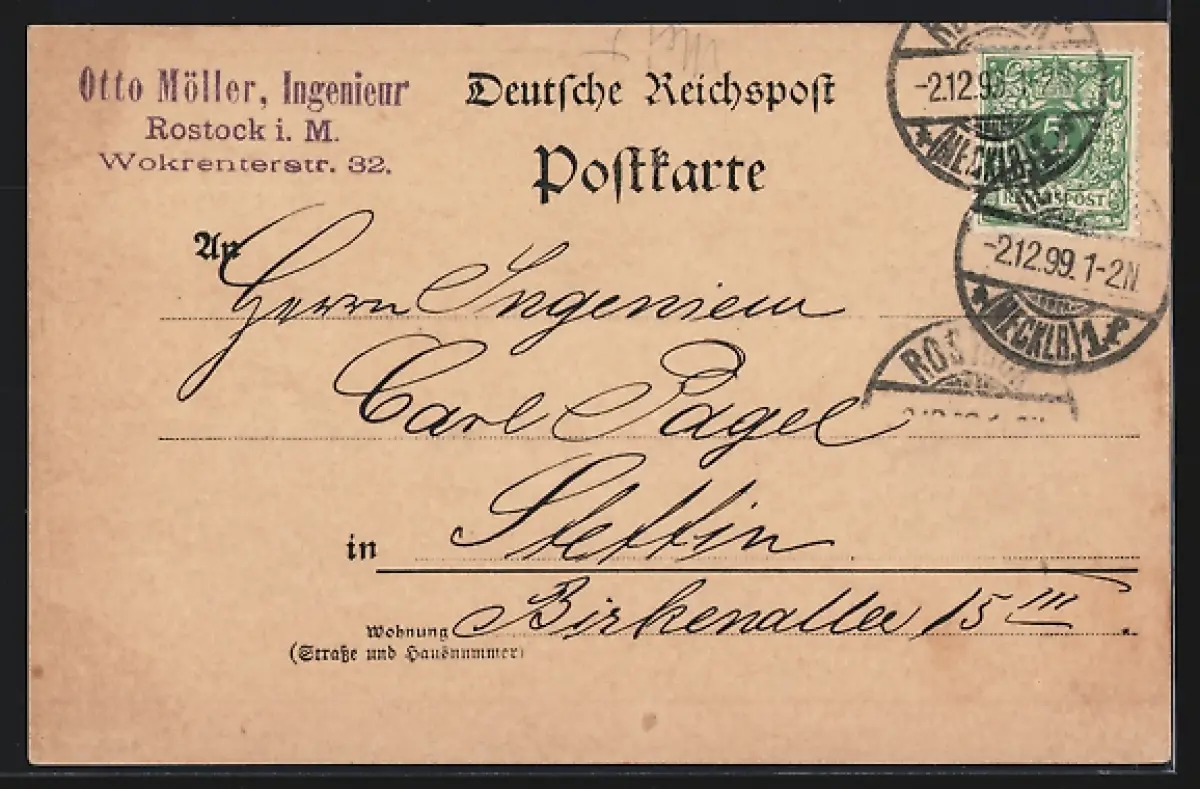 Otto Möller, Ingenieur
Rostock i. M.
Wokrenterstr. 32.
Deutsche Reichspost
Postkarte
-2.12.99. 1-2N
* (MECKLB.) 1.f
5
REICHSPOST
-2.12.99. 1-2N
* (MECKLB.) 1.f
ROSTOCK
An
Herrn Ingenieur
Carl Pagel
in Stettin
Wohnung Birkenallee 15 III
(Straße und Hausnummer)